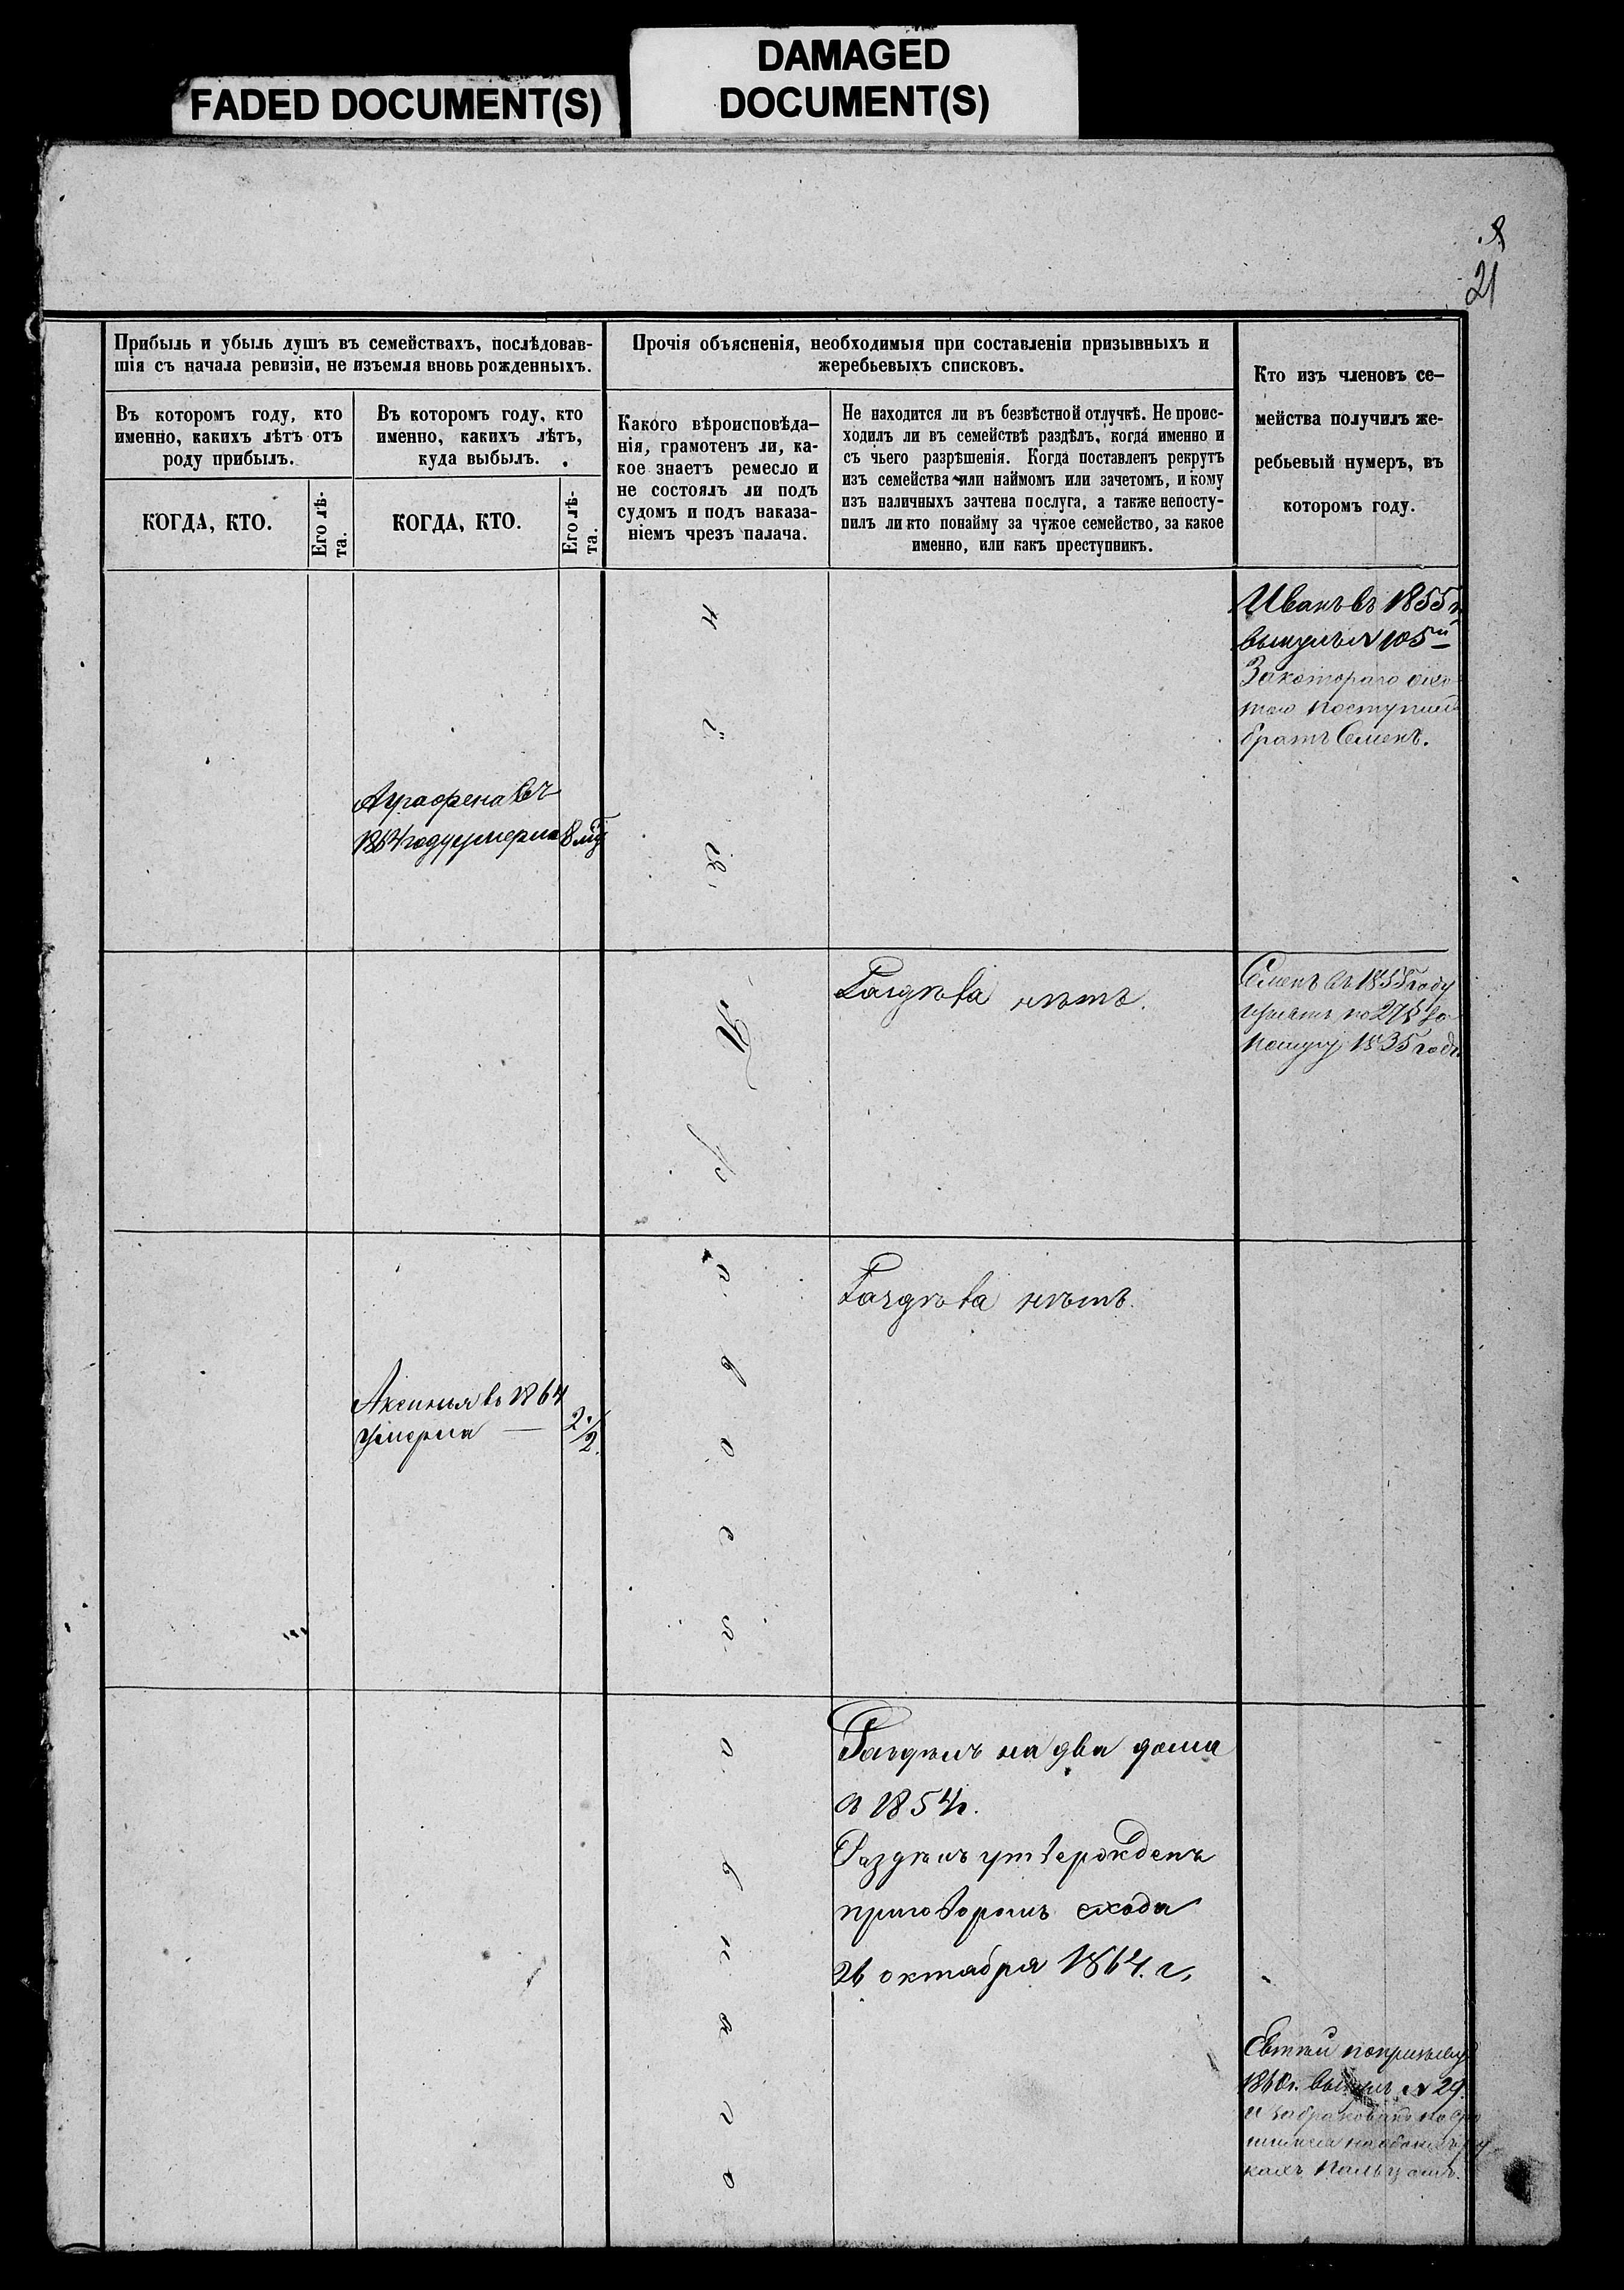 FADED DOCUMENT(S)
DAMAGED
DOCUMENT(S)
21
Прибыль и убыль душъ въ семействахъ, послѣдовав-
шія съ начала ревизіи, не изъемля вновь рожденныхъ.
Въ которомъ году, кто
именно, какихъ лѣтъ отъ
роду прибылъ.
Въ которомъ году, кто
именно, какихъ лѣтъ,
куда выбылъ.
КОГДА, КТО.
Его лѣ-
та.
КОГДА, КТО.
Его лѣ-
та.
Прочія объясненія, необходимыя при составленіи призывныхъ и
жеребьевыхъ списковъ.
Какого вѣроисповѣда-
нія, грамотенъ ли, ка-
кое знаетъ ремесло и
не состоялъ ли подъ
судомъ и подъ наказа-
ніемъ чрезъ палача.
Не находится ли въ безвѣстной отлучкѣ. Не проис-
ходилъ ли въ семействѣ раздѣлъ, когда именно и
съ чьего разрѣшенія. Когда поставленъ рекрутъ
изъ семейства или наймомъ или зачетомъ, и кому
изъ наличныхъ зачтена послуга, а также непосту-
пилъ ли кто понайму за чужое семейство, за какое
именно, или какъ преступникъ.
Кто изъ членовъ се-
мейства получилъ же-
ребьевый нумеръ, въ
которомъ году.
Иванъ въ 1855 г.
вынулъ № 105й
За котораго охо
тою поступилъ
братъ Семенъ.
Аграфена въ
1864 году умерла
8 мѣ
Раздѣла нѣтъ.
Семенъ въ 1855 году
1835 года
Раздѣла нѣтъ.
Аксинья въ 1864
умерла
2 1/2.
Раздѣлъ на два дома
въ 1854 г.
Раздѣлъ утвержденъ
приговоромъ схода
26 октября 1864. г.
Православнаго
Евтѣй
вынулъ № 29.
и забракованъ
кахъ пальцамъ.